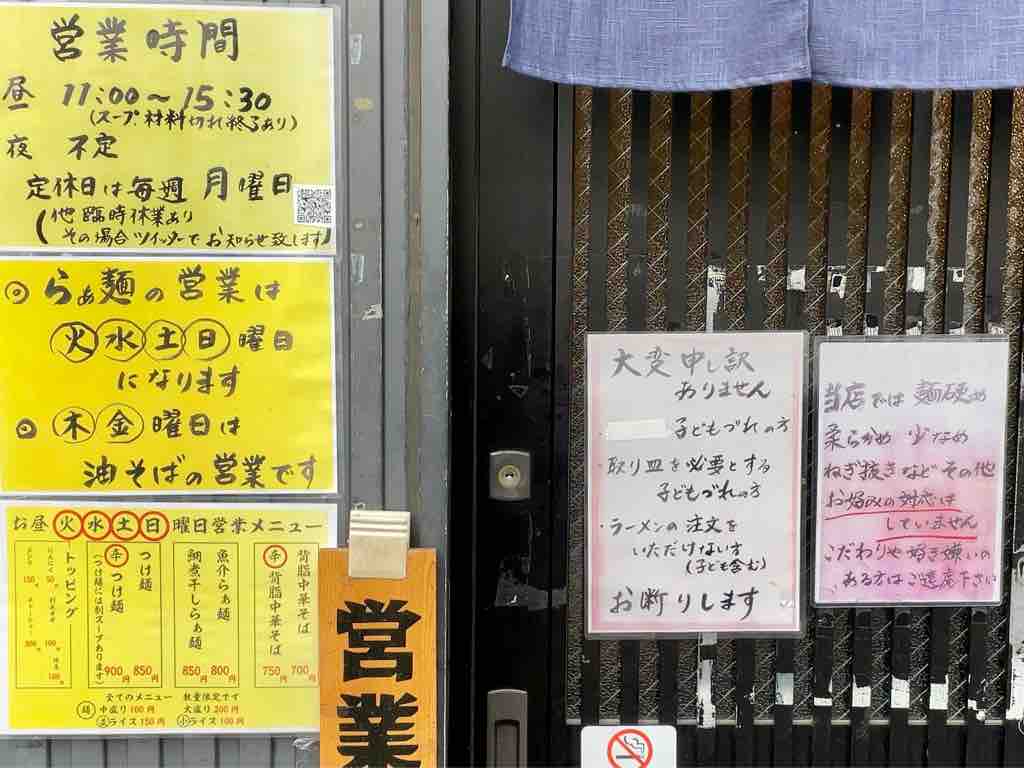 営業時間
昼 11:00〜15:30
(スープ材料切れ終了あり)
夜 不定
定休日は毎週 月曜日
(他 臨時休業あり
その場合ツイッターでお知らせ致します)
◎らぁ麺の営業は
火水土日曜日
になります
◎木金曜日は
油そばの営業です
お昼火水土日曜日営業メニュー
背脂中華そば 700円
辛背脂中華そば 750円
魚介らぁ麺 800円
鯛煮干しらぁ麺 850円
つけ麺 850円
辛つけ麺 900円
(つけ麺には割スープあります)
トッピング
全てのメニュー 数量限定です
麺 中盛り100円 大盛り200円
ライス150円 小ライス100円
営業
大変申し訳
ありません
子どもづれの方
・取り皿を必要とする
子どもづれの方
・ラーメンの注文を
いただけない方
(子ども含む)
お断りします
当店では 麺硬め
柔らかめ 少なめ
ねぎ抜きなどその他
お好みの対応は
していません
こだわりや好き嫌いの
ある方はご遠慮下さい